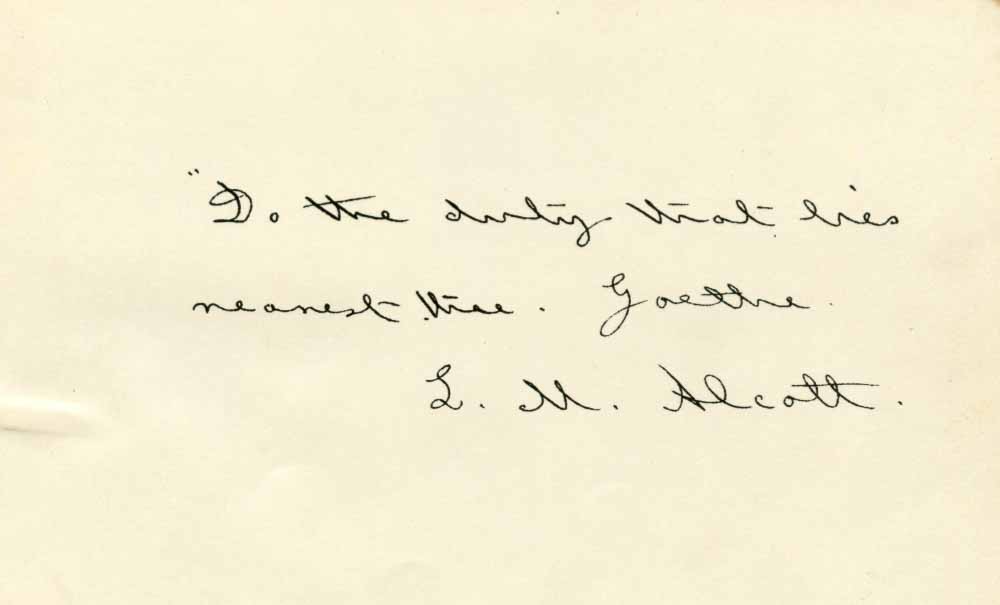 "Do the duty that lies
nearest thee. Goethe.
L. M. Alcott.